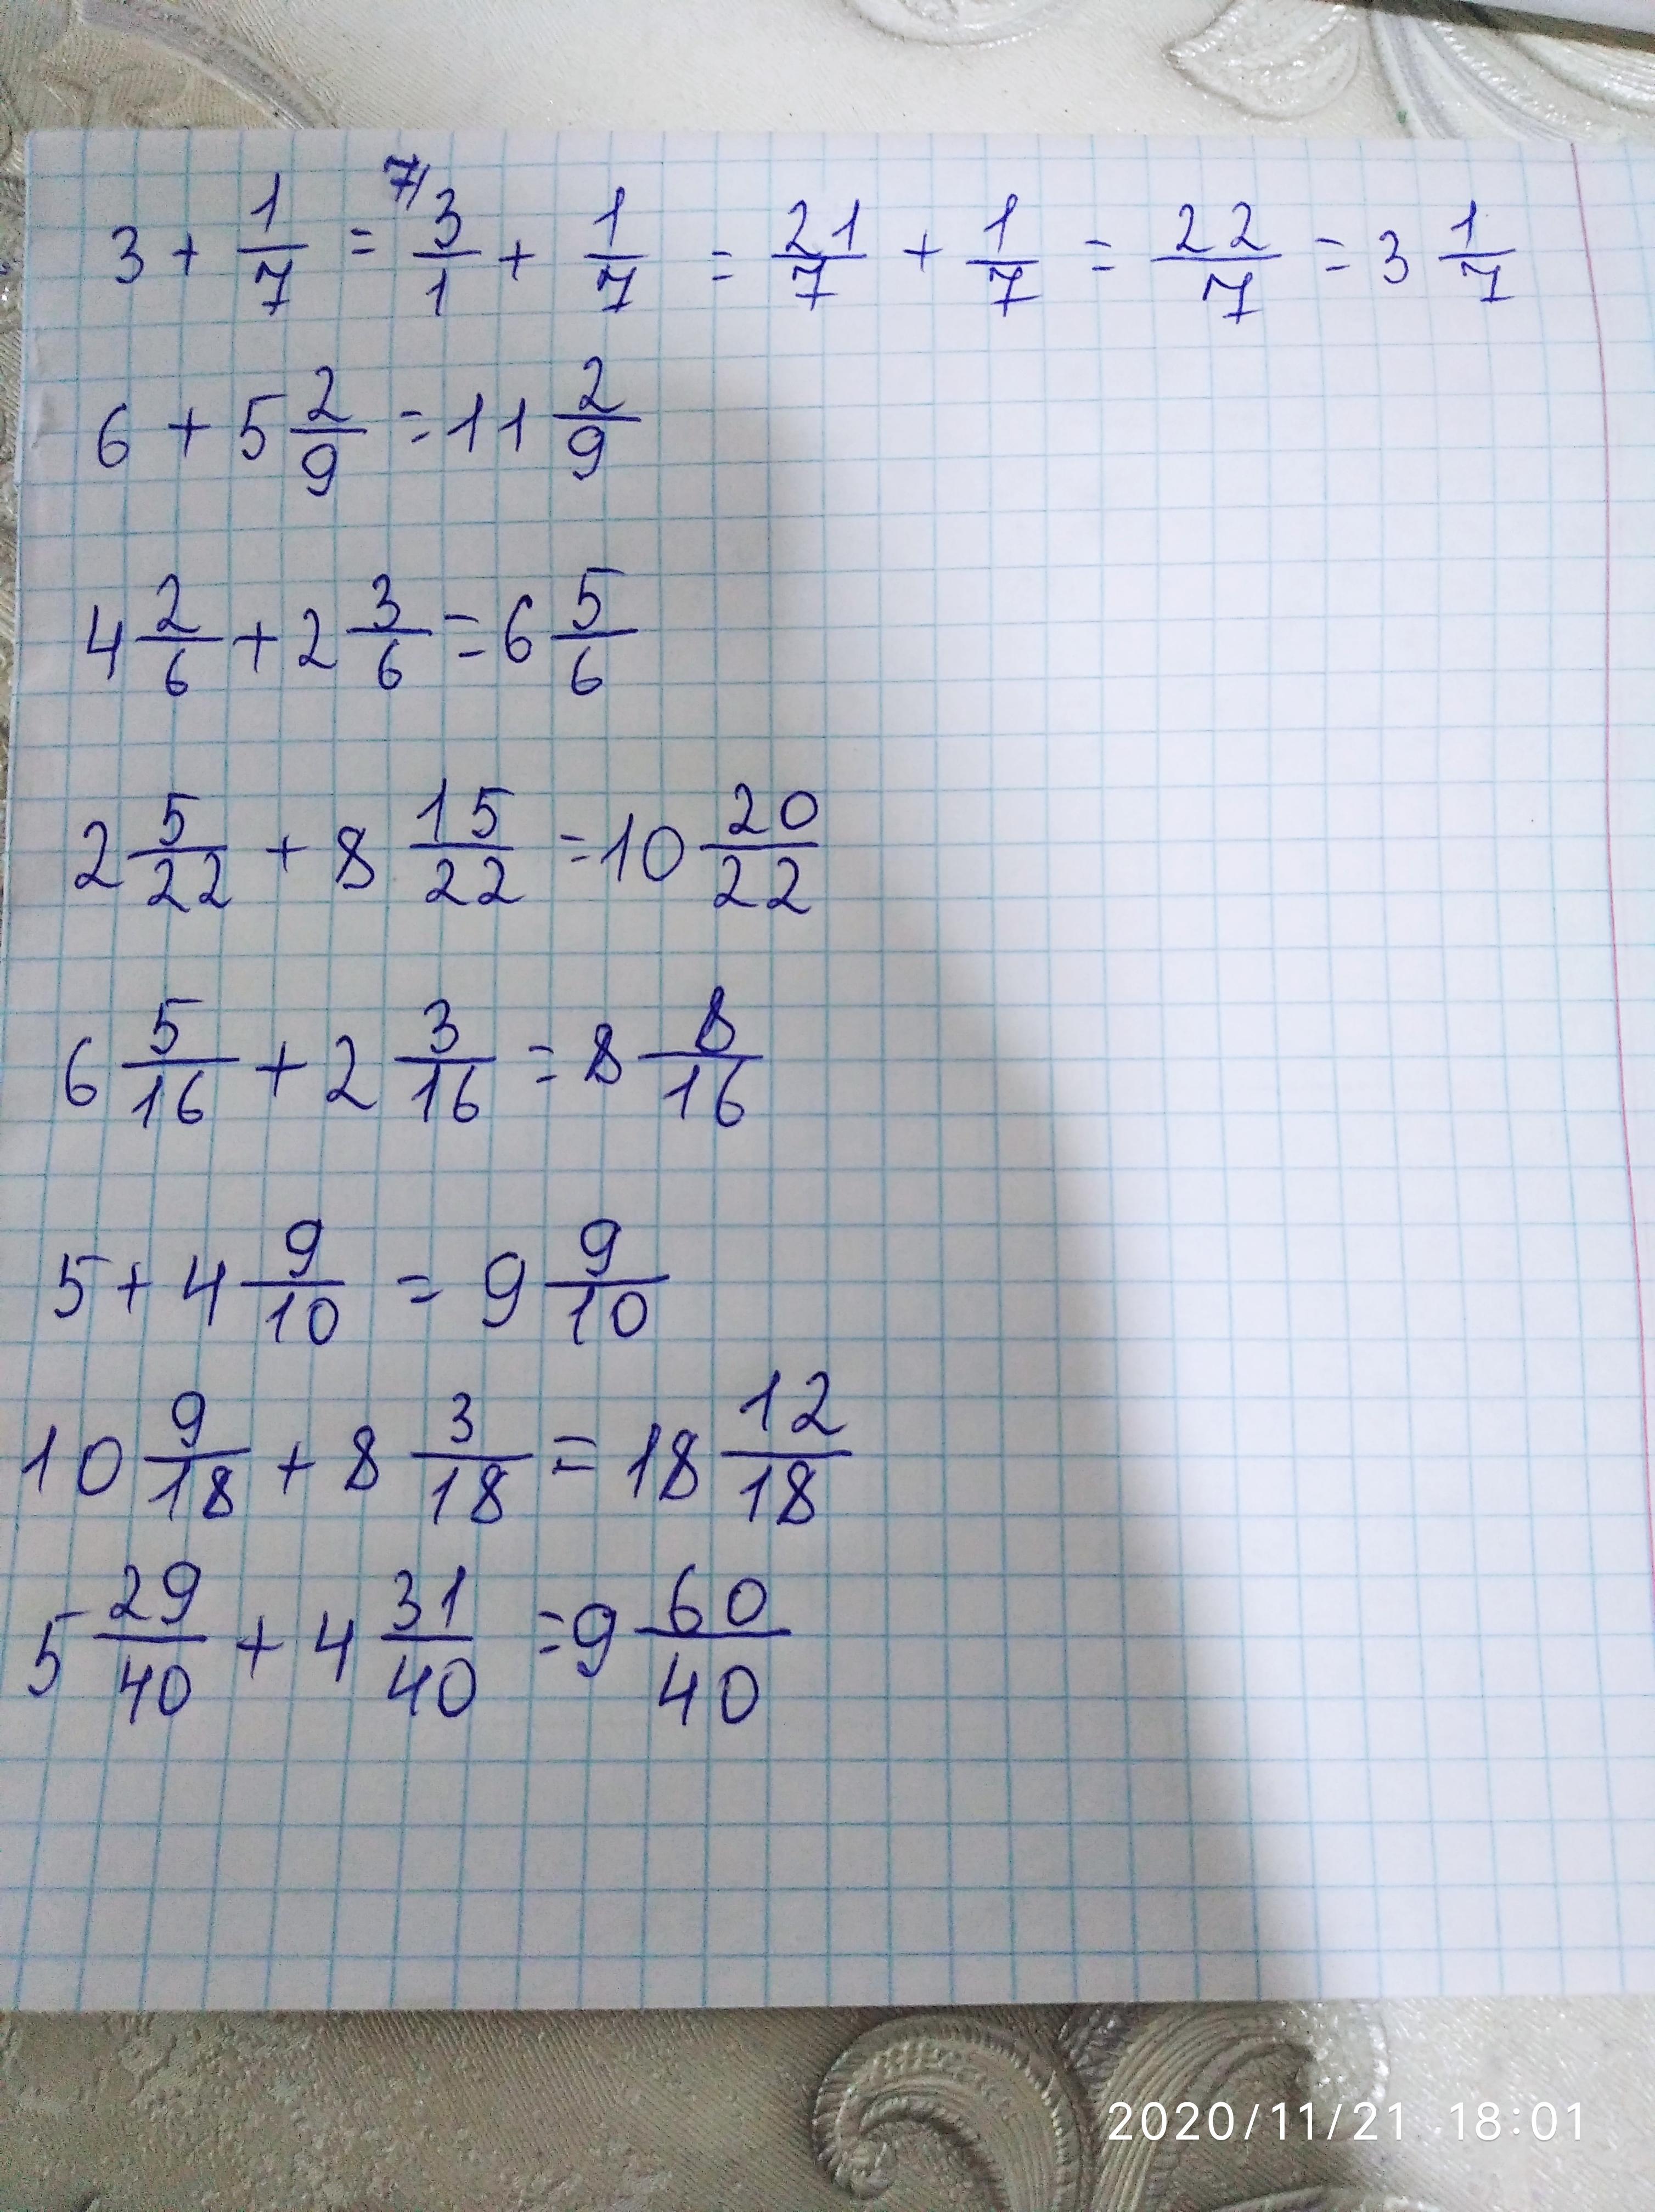 3 + 1/7 = 7/ 3/1 + 1/7 = 21/7 + 1/7 = 22/7 = 3 1/7
6 + 5 2/9 = 11 2/9
4 2/6 + 2 3/6 = 6 5/6
2 5/22 + 8 15/22 = 10 20/22
6 5/16 + 2 3/16 = 8 8/16
5 + 4 9/10 = 9 9/10
10 9/18 + 8 3/18 = 18 12/18
5 29/40 + 4 31/40 = 9 60/40
2020/11/21 18:01